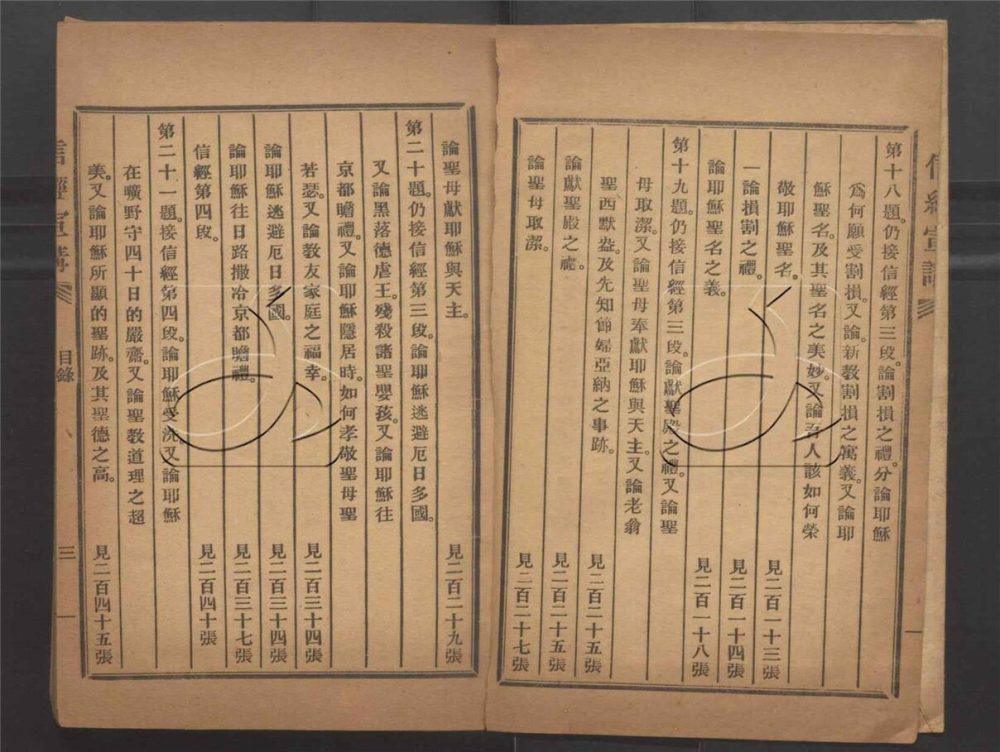 信經宣講
第十八題。仍接信經第三段。論割損之禮。分論耶穌
爲何願受割損。又論新教割損之寓義。又論耶
穌聖名。及其聖名之美妙。又論吾人該如何榮
敬耶穌聖名。見二百一十三張
一論損割之禮。見二百一十四張
論耶穌聖名之義。見二百一十八張
第十九題。仍接信經第三段。論獻聖殿之禮。又論聖
母取潔。又論聖母奉獻耶穌與天主。又論老翁
聖西默盎。及先知節婦亞納之事跡。見二百二十五張
論獻聖殿之禮。見二百二十五張
論聖母取潔。見二百二十七張
論聖母獻耶穌與天主。見二百二十九張
第二十題。仍接信經第三段。論耶穌逃避厄日多國。
又論黑落德虐王。殘殺諸聖嬰孩。又論耶穌往
京都瞻禮。又論耶穌隱居時。如何孝敬聖母聖
若瑟。又論教友家庭之福幸。見二百三十四張
論耶穌逃避厄日多國。見二百三十四張
論耶穌往日路撒冶京都瞻禮。見二百三十七張
信經第四段。見二百四十張
第二十一題。接信經第四段。論耶穌受洗。又論耶穌
在曠野守四十日的嚴齋。又論聖教道理之超
美。又論耶穌所顯的聖跡。及其聖德之高。見二百四十五張
信經宣講 目錄 三